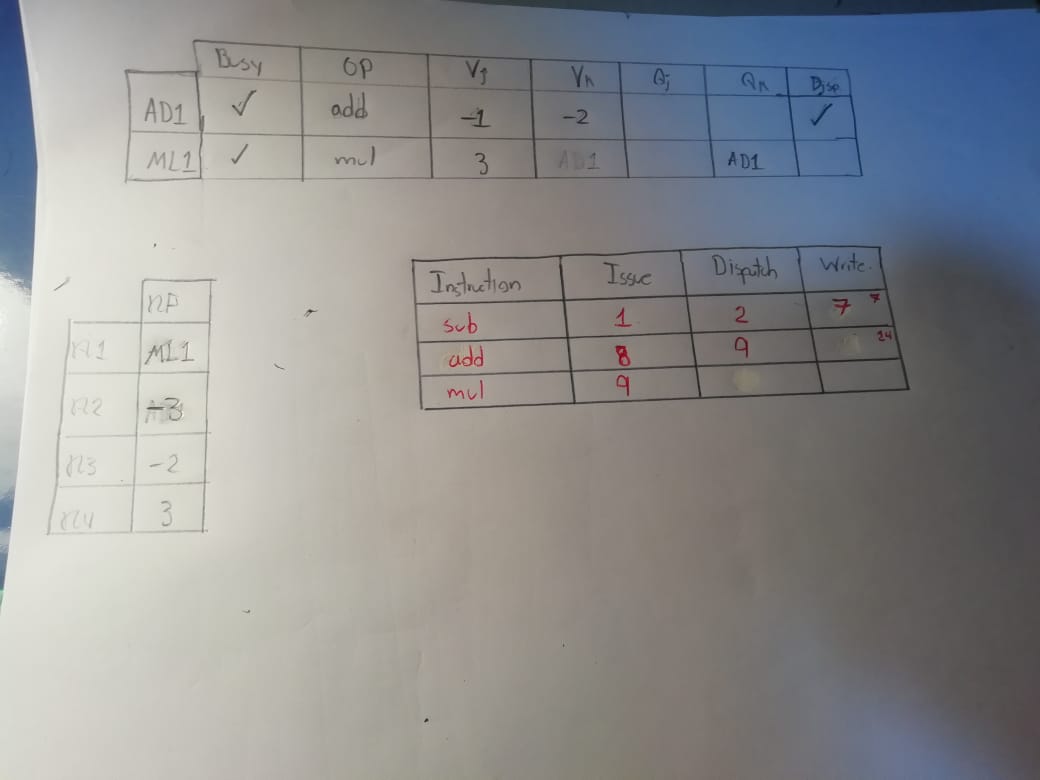 Busy OP Vj Vk Qj Qk Disp
AD1 ✓ add -1 -2 ✓
ML1 ✓ mul 3 AD1 AD1
RP
R1 ML1
R2 -3
R3 -2
R4 3
Instruction Issue Dispatch Write.
sub 1 2 7 7
add 8 9 24
mul 9